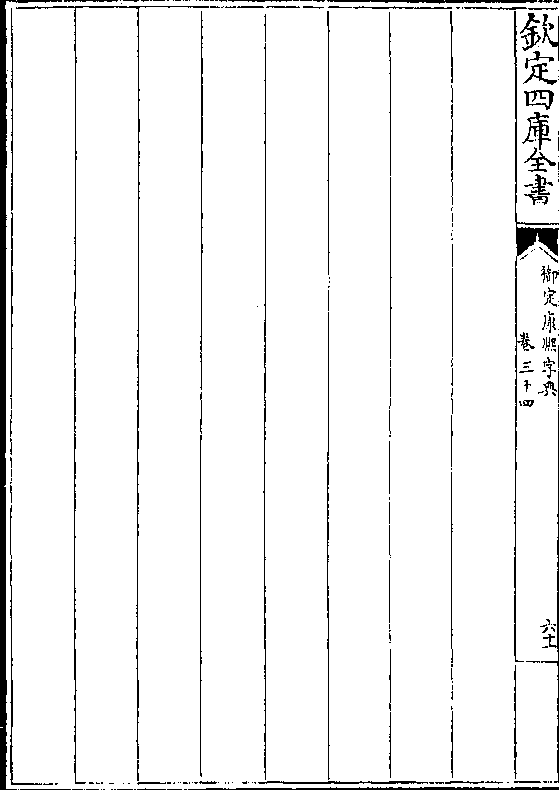 欽定四庫全書
御定康熙字典
卷三十四
六十